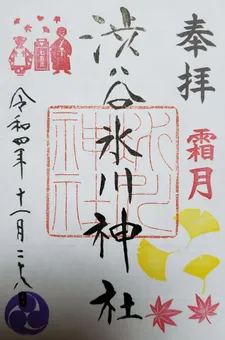 奉拝
霜月
渋谷氷川神社
氷川
神社
令和四年十一月二十八日